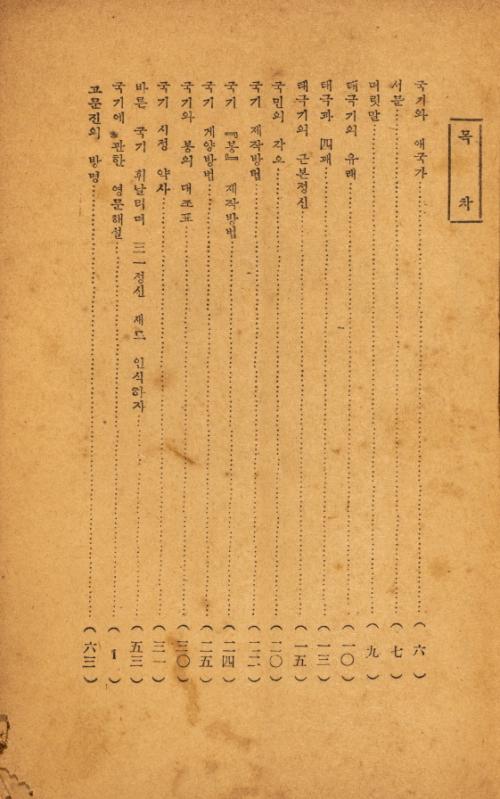 목차
국기와 애국가………(六)
서문………(七)
머릿말………(九)
태극기의 유래………(一〇)
태극과 四괘………(一三)
태극기의 근본정신………(一五)
국민의 각오………(二〇)
국기 제작방법………(二二)
국기 『봉』 제작방법………(二四)
국기 게양방법………(二五)
국기와 봉의 대조표………(三〇)
국기 시정 약사………(三一)
바른 국기 휘날리며 三一정신 새로 인식하자………(五三)
국기에 관한 영문해설………(1)
고문진의 방명………(六三)